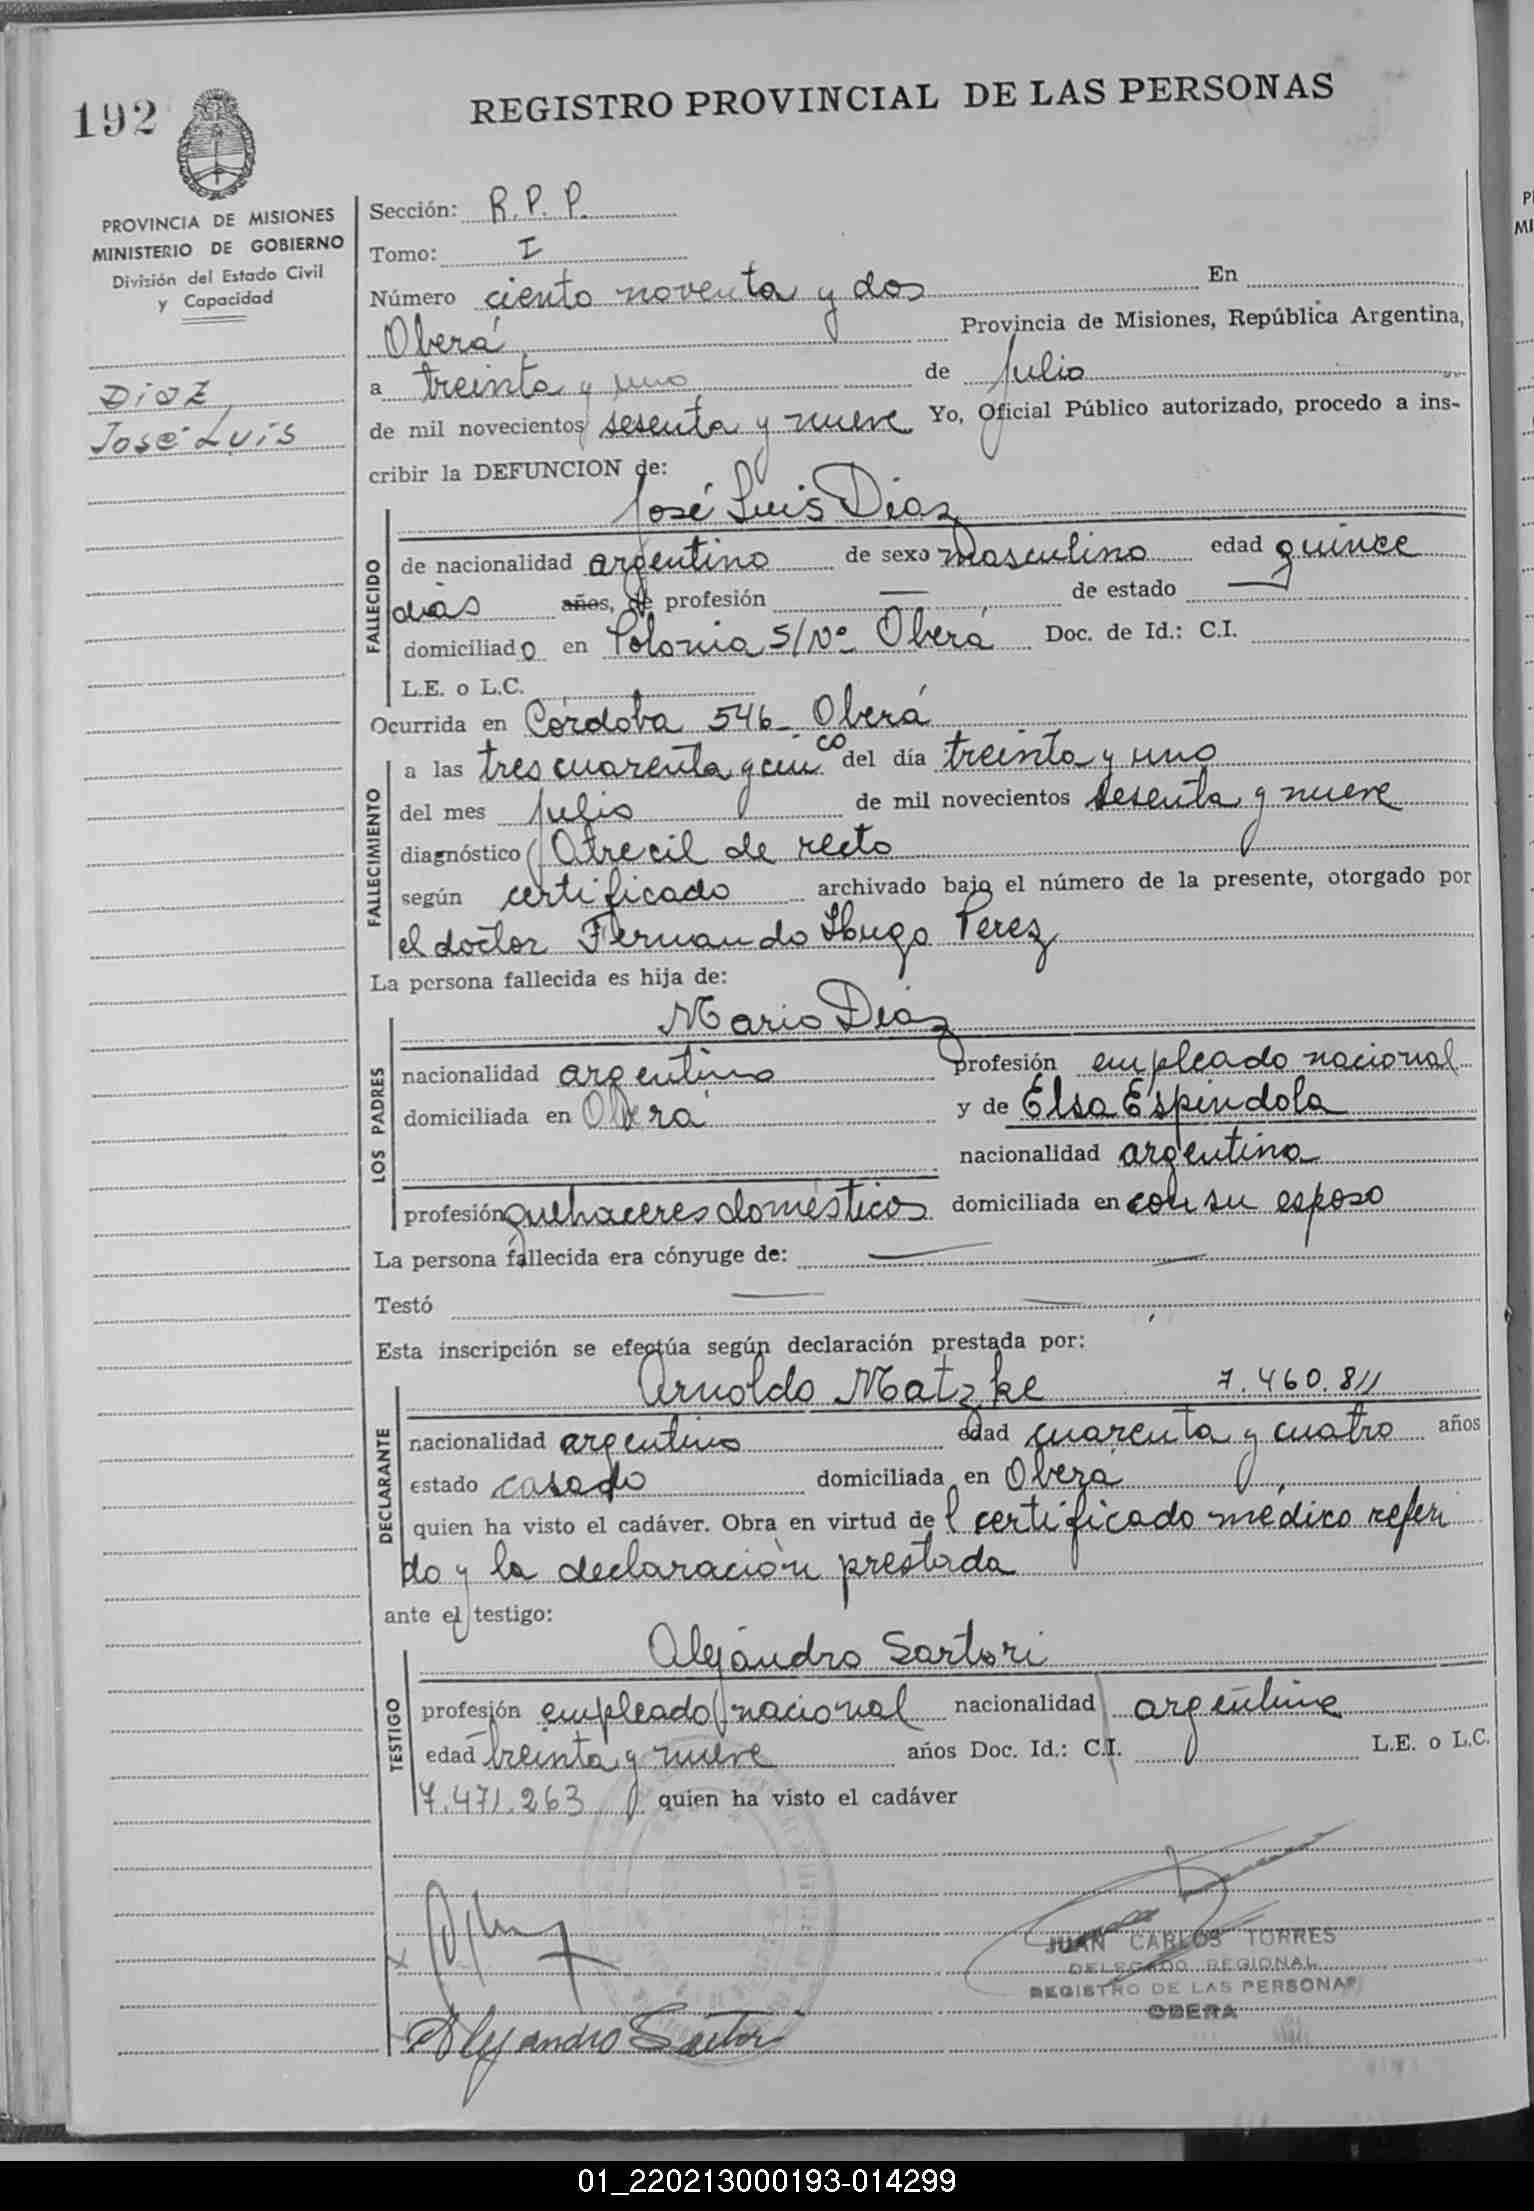 192
REGISTRO PROVINCIAL DE LAS PERSONAS
PROVINCIA DE MISIONES
MINISTERIO DE GOBIERNO
División del Estado Civil
y Capacidad
Diaz
José Luis
Sección: R. P. P.
Tomo: I
Número ciento noventa y dos En
Oberá Provincia de Misiones, República Argentina,
a treinta y uno de Julio
de mil novecientos sesenta y nueve Yo, Oficial Público autorizado, procedo a ins-
cribir la DEFUNCION de:
José Luis Diaz
FALLECIDO
de nacionalidad argentino de sexo masculino edad quince
dias años, de profesión — de estado —
domiciliado en Colonia S/Nº Oberá Doc. de Id.: C.I.
L.E. o L.C.
Ocurrida en Córdoba 546 - Oberá
FALLECIMIENTO
a las tres cuarenta y cinco del día treinta y uno
del mes julio de mil novecientos sesenta y nueve
diagnóstico de recto
según certificado archivado bajo el número de la presente, otorgado por
el doctor Fernando Hugo Perez
La persona fallecida es hija de:
Mario Diaz
LOS PADRES
nacionalidad argentino profesión empleado nacional
domiciliada en Oberá y de Elsa Espindola
nacionalidad argentina
profesión quehaceres domésticos domiciliada en con su esposo
La persona fallecida era cónyuge de: —
Testó —
Esta inscripción se efectúa según declaración prestada por:
Arnoldo Matzke 7.460.811
DECLARANTE
nacionalidad argentino edad cuarenta y cuatro años
estado casado domiciliada en Oberá
quien ha visto el cadáver. Obra en virtud del certificado médico referi
do y la declaración prestada
ante el testigo:
Alejandro Sartori
TESTIGO
profesión empleado nacional nacionalidad argentino
edad treinta y nueve años Doc. Id.: C.I. L.E. o L.C.
7.471.263 quien ha visto el cadáver
JUAN CARLOS TORRES
DELEGADO REGIONAL
REGISTRO DE LAS PERSONAS
OBERA
Alejandro Sartori
01_220213000193-014299